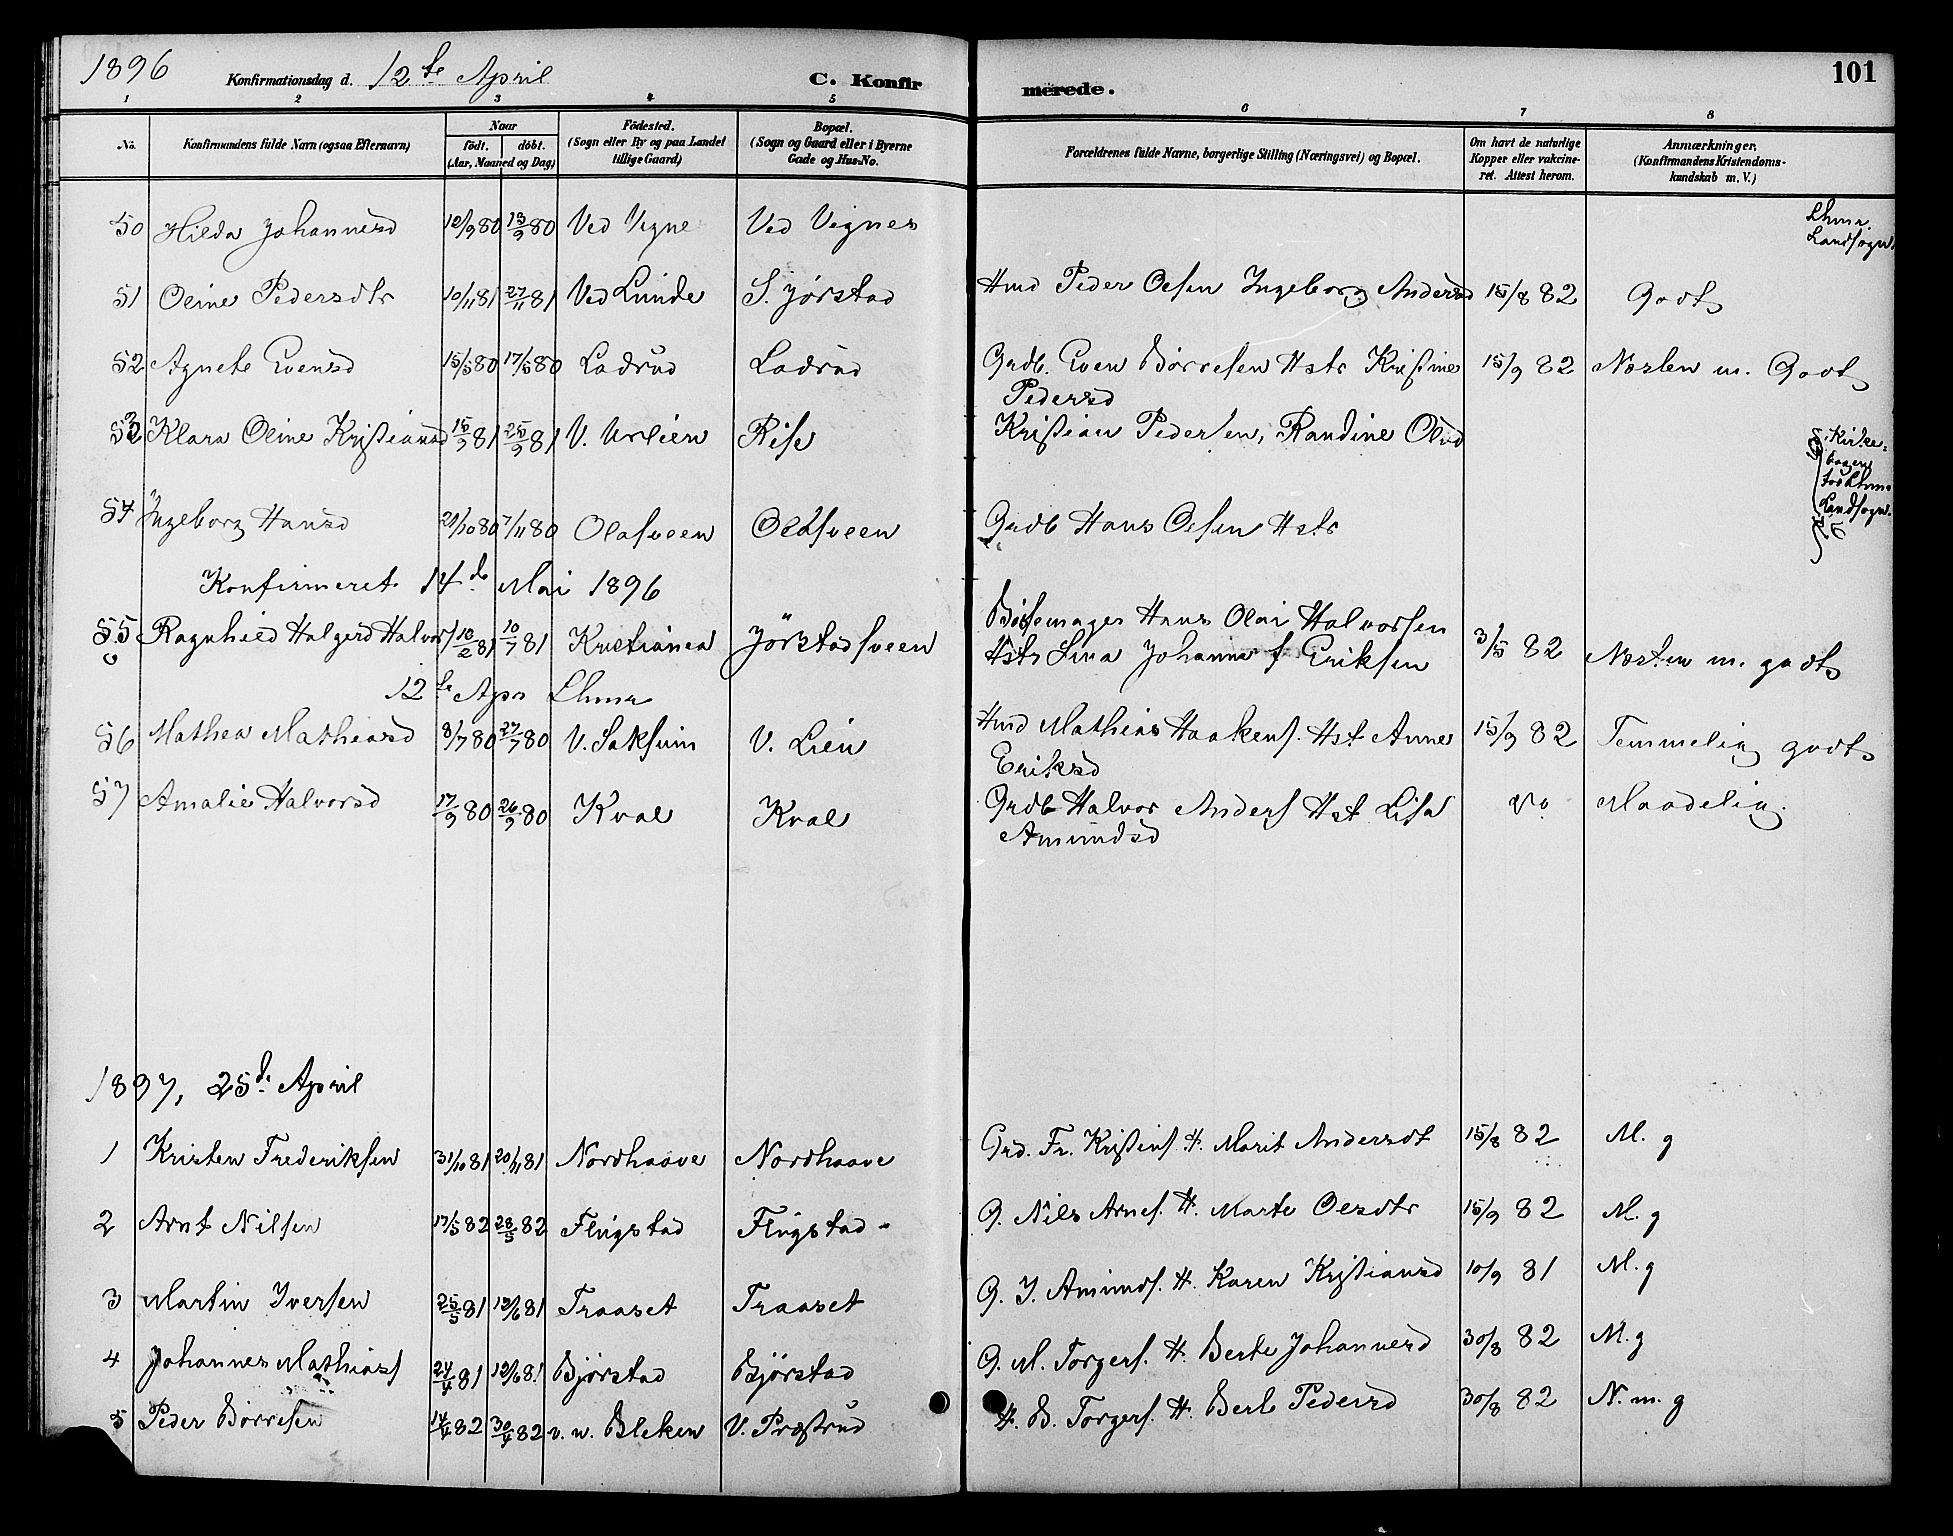 1896 Konfirmationsdag d. 12te April C. Konfirmerede. 101
1 2 3 4 5 6 7 8
No. Konfirmandens fulde Navn (ogsaa Efternavn) Naar født. døbt. (Aar, Maaned og Dag) Fødested. (Sogn eller By og paa Landet tillige Gaard) Bopæl. (Sogn og Gaard eller i Byerne Gade og Hus-No. Forældrenes fulde Navne, borgerlige Stilling (Næringsvei) og Bopæl. Om havt de naturlige Kopper eller vakcineret. Attest herom. Anmærkninger. (Konfirmandens Kristendomskundskab m. V.)
50 Hilda Johannesd 12/9 80 19/9 80 Ved Vigne Ved Vignes Lhmr. Landsogn
51 Oline Pedersdtr 10/11 81 27/11 81 Ved Lunde S. Jørstad Hmd Peder Olsen Ingeborg Andersd 15/8 82 Godt
52 Agnete Evensd 15/5 80 17/5 80 Ladrud Ladrud Grdb. Even Børresen Hstr Kristine 15/9 82 Næsten m. Godt
Pedersd
53 Klara Oline Kristiansd 15/9 81 25/9 81 V. Urlien Rise Kristian Pedersen, Randine Olsd
Kirkebogen for Lhmr Landsogn.
54 Ingeborg Hansd 21/10 80 7/11 80 Olafsveen Olafsveen Grdb Hans Olsen Hstr
Konfirmeret 14de Mai 1896
55 Ragnhild Halgerd Halvors 10/2 81 10/7 81 Kristiania Jørstadsveen Bøssemager Hans Olai Halvorsen 3/5 82 Næsten m. godt
Hstr Lina Johanna f Eriksen
12te Apr Lhmr
56 Mathea Mathiasd 8/7 80 27/7 80 V. Saksum V. Lien Hmd Mathias Haakens. Hst Anne 15/9 82 Temmelig godt
Eriksd
57 Amalie Halvorsd 17/9 80 26/9 80 Kval Kval Grdb Halvor Anders Hst Lisa do Maadelig.
Amundsd
1897, 25de April
1 Kristen Frederiksen 31/10 81 20/11 81 Nordhaave Nordhaave Grd. Fr. Kristens. H. Marit Andersdt 15/8 82 M. g
2 Arnt Nilsen 17/5 82 28/5 82 Flugstad Flugstad G. Nils Arnes. H. Marte Olsdtr 15/9 82 M. g
3 Martin Iversen 25/5 81 12/6 81 Traaset Traaset G. I. Amunds. H. Karen Kristiansd 10/9 81 M. g
4 Johannes Mathiass 24/4 81 12/6 81 Bjørstad Bjørstad G. M. Torgers. H. Berte Johannesd 30/8 82 M. g
5 Peder Børresen 14/4 82 30/4 82 v. n. Bleken V. Præstrud H. B. Torgers. H. Berte Pedersd 30/8 82 N. m. g